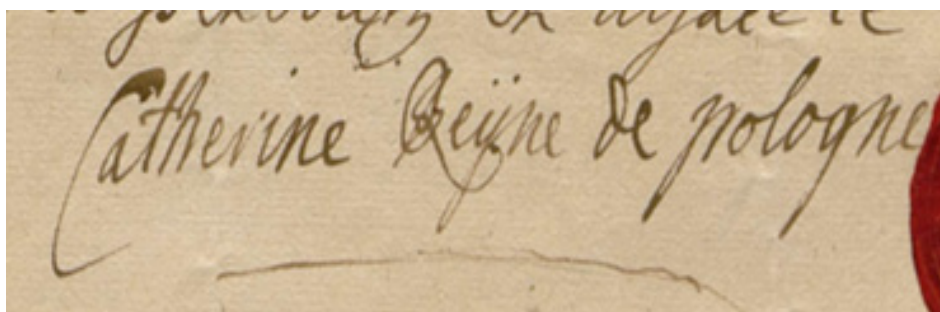 Catherine Reijne de pologne